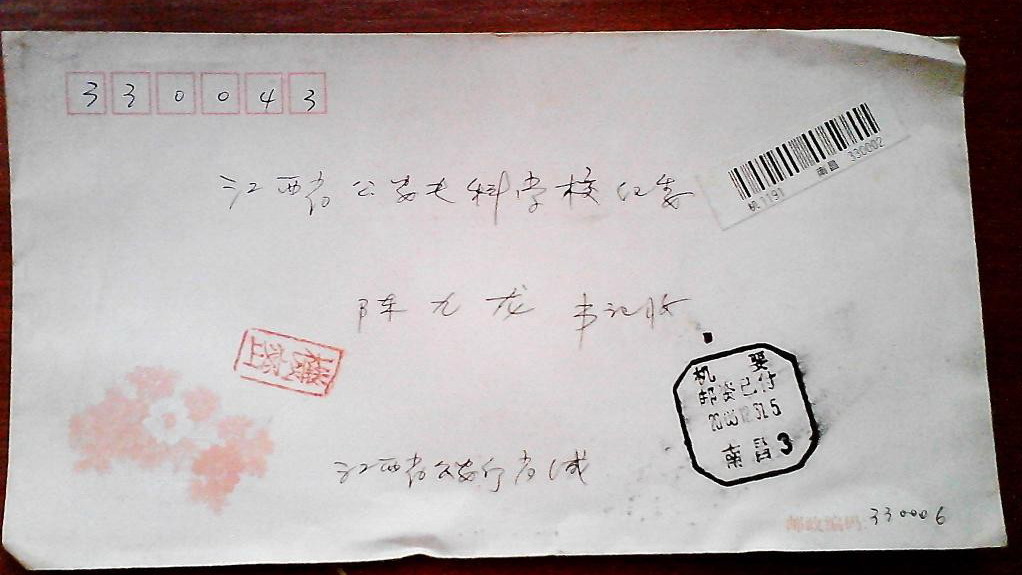 330043
机1191 南昌 330002
江西省公安专科学校纪委
陈九龙 书记收
机要
邮资已付
南昌3
江西省公安厅
邮政编码: 330006